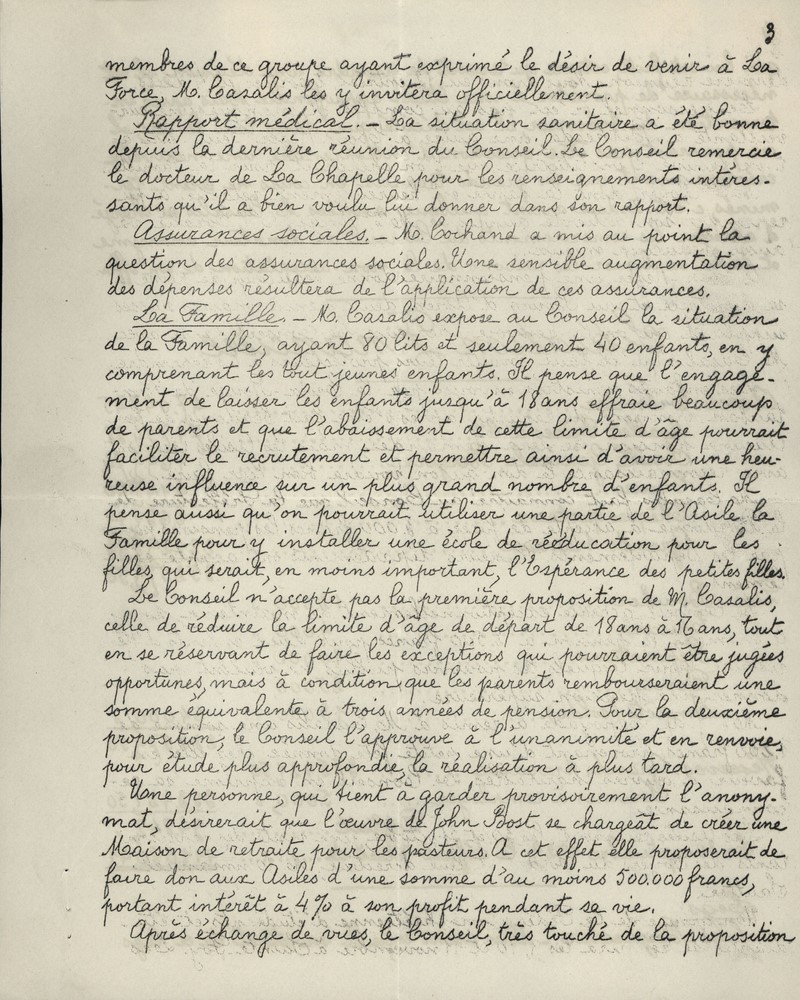 3
membres de ce groupe ayant exprimé le désir de venir à La
Force, M. Casalis les y invitera officiellement.
Rapport médical. _ La situation sanitaire a été bonne
depuis la dernière réunion du Conseil. Le Conseil remercie
le docteur de La Chapelle pour les renseignements intéres-
sants qu'il a bien voulu lui donner dans son rapport.
Assurances sociales. _ M. Cochand a mis au point la
question des assurances sociales. Une sensible augmentation
des dépenses résultera de l'application de ces assurances.
La Famille. _ M. Casalis expose au Conseil la situation
de la Famille, ayant 80 lits et seulement 40 enfants, en y
comprenant les tout jeunes enfants. Il pense que l'engage-
ment de laisser les enfants jusqu'à 18 ans effraie beaucoup
de parents et que l'abaissement de cette limite d'âge pourrait
faciliter le recrutement et permettre ainsi d'avoir une heu-
reuse influence sur un plus grand nombre d'enfants. Il
pense aussi qu'on pourrait utiliser une partie de l'Asile la
Famille pour y installer une école de rééducation pour les
filles, qui serait, en moins important, l'Espérance des petites filles.
Le Conseil n'accepte pas la première proposition de M. Casalis,
celle de réduire la limite d'âge de départ de 18 ans à 15 ans, tout
en se réservant de faire les exceptions qui pourraient être jugées
opportunes, mais à condition que les parents rembourseraient une
somme équivalente à trois années de pension. Pour la deuxième
proposition, le Conseil l'approuve à l'unanimité et en renvoie,
pour étude plus approfondie, la réalisation à plus tard.
Une personne, qui tient à garder provisoirement l'anony-
mat, désirerait que l'œuvre de John Bost se chargeât de créer une
Maison de retraite pour les pasteurs. A cet effet elle proposerait de
faire don aux Asiles d'une somme d'au moins 500.000 francs,
portant intérêt à 4% à son profit pendant sa vie.
Après échange de vues, le Conseil, très touché de la proposition